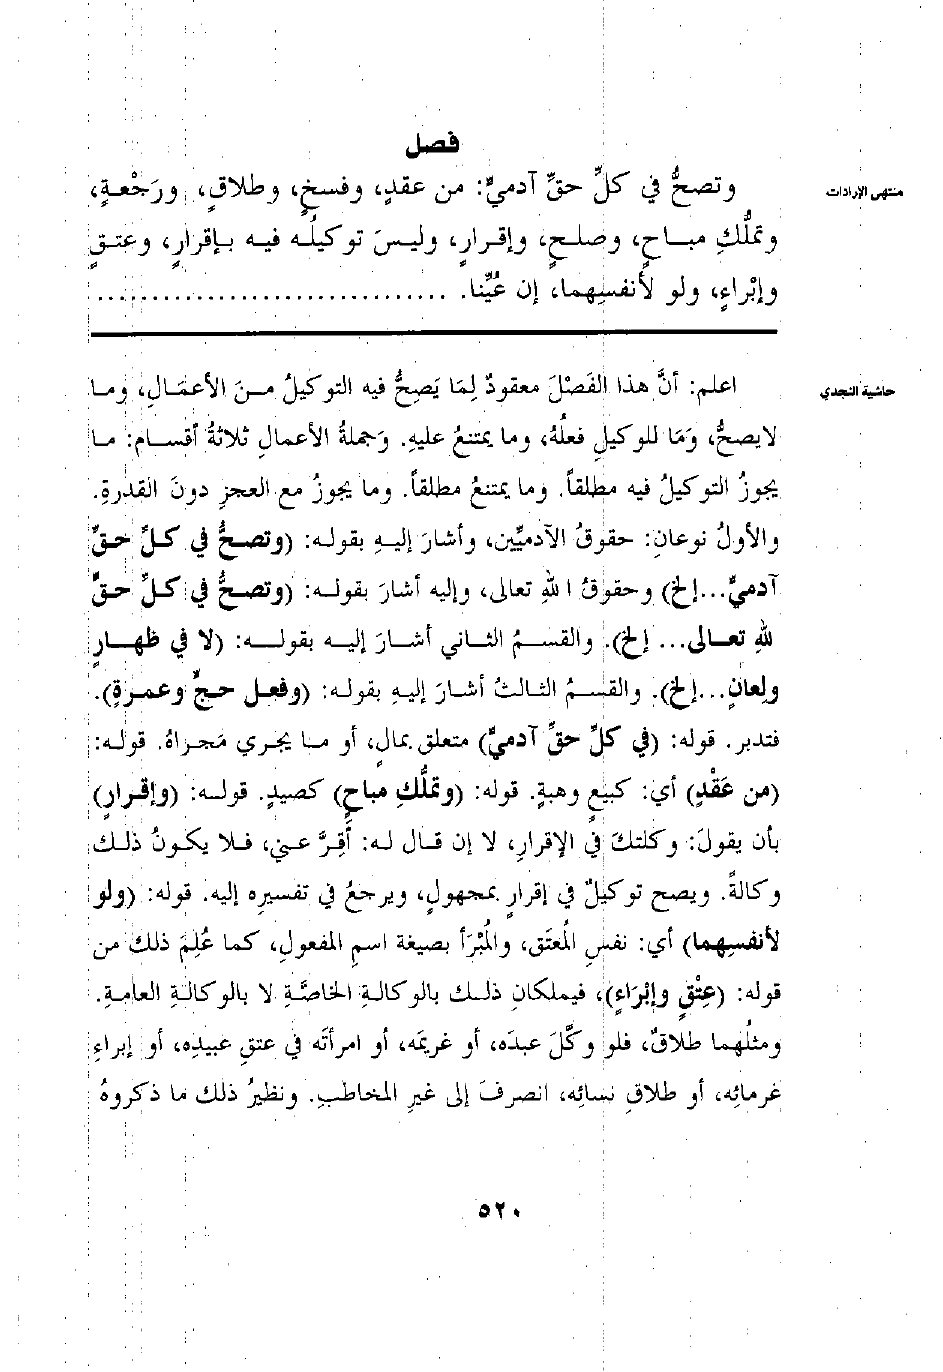 فصل
منتهى الإرادات
وتصحُّ في كلِّ حقِّ آدميٍّ: من عقدٍ، وفسخٍ، وطلاقٍ، ورَجْعةٍ،
وتملُّكِ مباحٍ، وصلحٍ، وإقرارٍ، وليسَ توكيلُه فيه بإقرارٍ، وعتقٍ
وإبْراءٍ، ولو لأنفسِهما، إن عُيِّنا. ................................
حاشية النجدي
اعلم: أنَّ هذا الفَصْلَ معقودٌ لِمَا يَصِحُّ فيه التوكيلُ منَ الأعمَالِ، وما
لايصحُّ، وَمَا للوكيلِ فعلُهُ، وما يمتنعُ عليهِ. وَجملةُ الأعمالِ ثلاثةُ أقسامٍ: ما
يجوزُ التوكيلُ فيه مطلقاً. وما يمتنعُ مطلقاً. وما يجوزُ مع العجزِ دونَ القدرةِ.
والأولُ نوعانِ: حقوقُ الآدميِّين، وأشارَ إليهِ بقولِه: (وتصحُّ في كلِّ حقِّ
آدميٍّ...إلخ) وحقوقُ اللهِ تعالى، وإليه أشارَ بقولِه: (وتصحُّ في كلِّ حقٍّ
للهِ تعالى... إلخ). والقسمُ الثاني أشارَ إليه بقولِه: (لا في ظهارٍ
ولِعانٍ...إلخ). والقسمُ الثالثُ أشارَ إليهِ بقولِه: (وفعل حجٍّ وعمرةٍ).
فتدبر. قوله: (في كلِّ حقِّ آدميٍّ) متعلقٍ بمالٍ، أو ما يجري مَجراهُ. قوله:
(من عَقْدٍ) أي: كبيعٍ وهبةٍ. قوله: (وتملُّكِ مباحٍ) كصيدٍ. قوله: (وإقرارٍ)
بأن يقولَ: وكلتكَ في الإقرارِ، لا إن قال له: أقِرَّ عني، فلا يكونُ ذلك
وكالةً. ويصح توكيلٌ في إقرارٍ بمجهولٍ، ويرجعُ في تفسيرِه إليه. قوله: (ولو
لأنفسِهما) أي: نفسِ المُعتَق، والمُبْرَأ بصيغة اسمِ المفعولِ، كما عُلِمَ ذلك من
قوله: (عِتْقٍ وإبْرَاءٍ)، فيملكانِ ذلك بالوكالةِ الخاصَّةِ لا بالوكالةِ العامةِ.
ومثلُهما طلاقٌ، فلو وكَّلَ عبدَه، أو غريمَه، أو امرأتَه في عتقِ عبيدِه، أو إبراءِ
غرمائِه، أو طلاقِ نسائِه، انصرفَ إلى غيرِ المخاطبِ. ونظيرُ ذلك ما ذكروهُ
٥٢٠